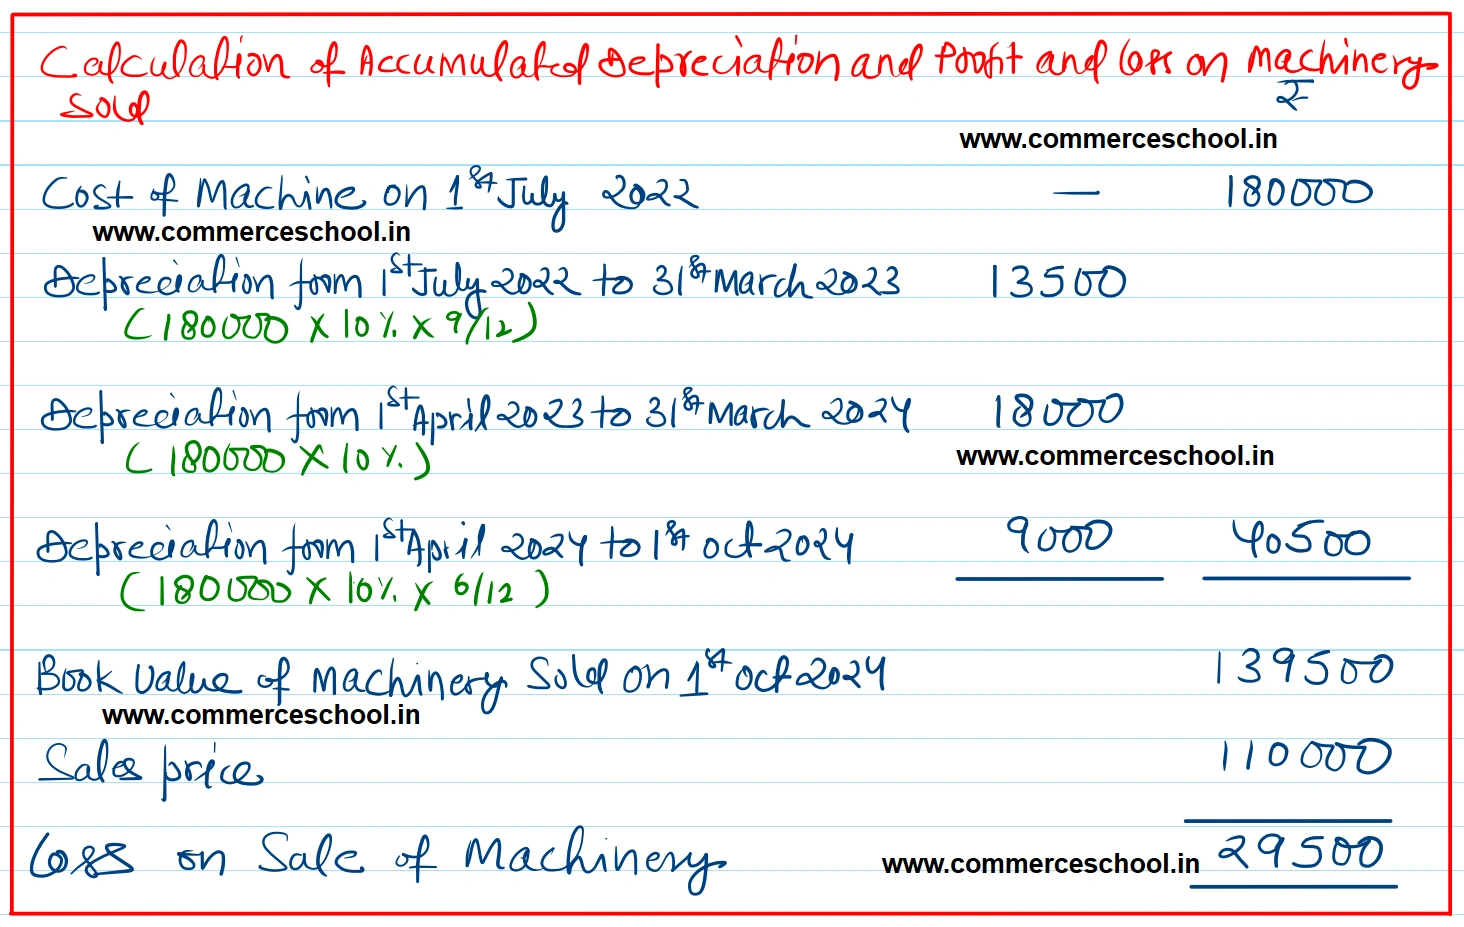 Calculation of Accumulated Depreciation and Profit and Loss on Machinery
Sold
₹
www.commerceschool.in
Cost of Machine on 1st July 2022 — 180000
www.commerceschool.in
Depreciation from 1st July 2022 to 31st March 2023 13500
(180000 × 10% × 9/12)
Depreciation from 1st April 2023 to 31st March 2024 18000
(180000 × 10%)
www.commerceschool.in
Depreciation from 1st April 2024 to 1st oct 2024 9000 40500
(180000 × 10% × 6/12)
Book Value of Machinery Sold on 1st oct 2024 139500
www.commerceschool.in
Sales price 110000
Loss on Sale of Machinery 29500
www.commerceschool.in